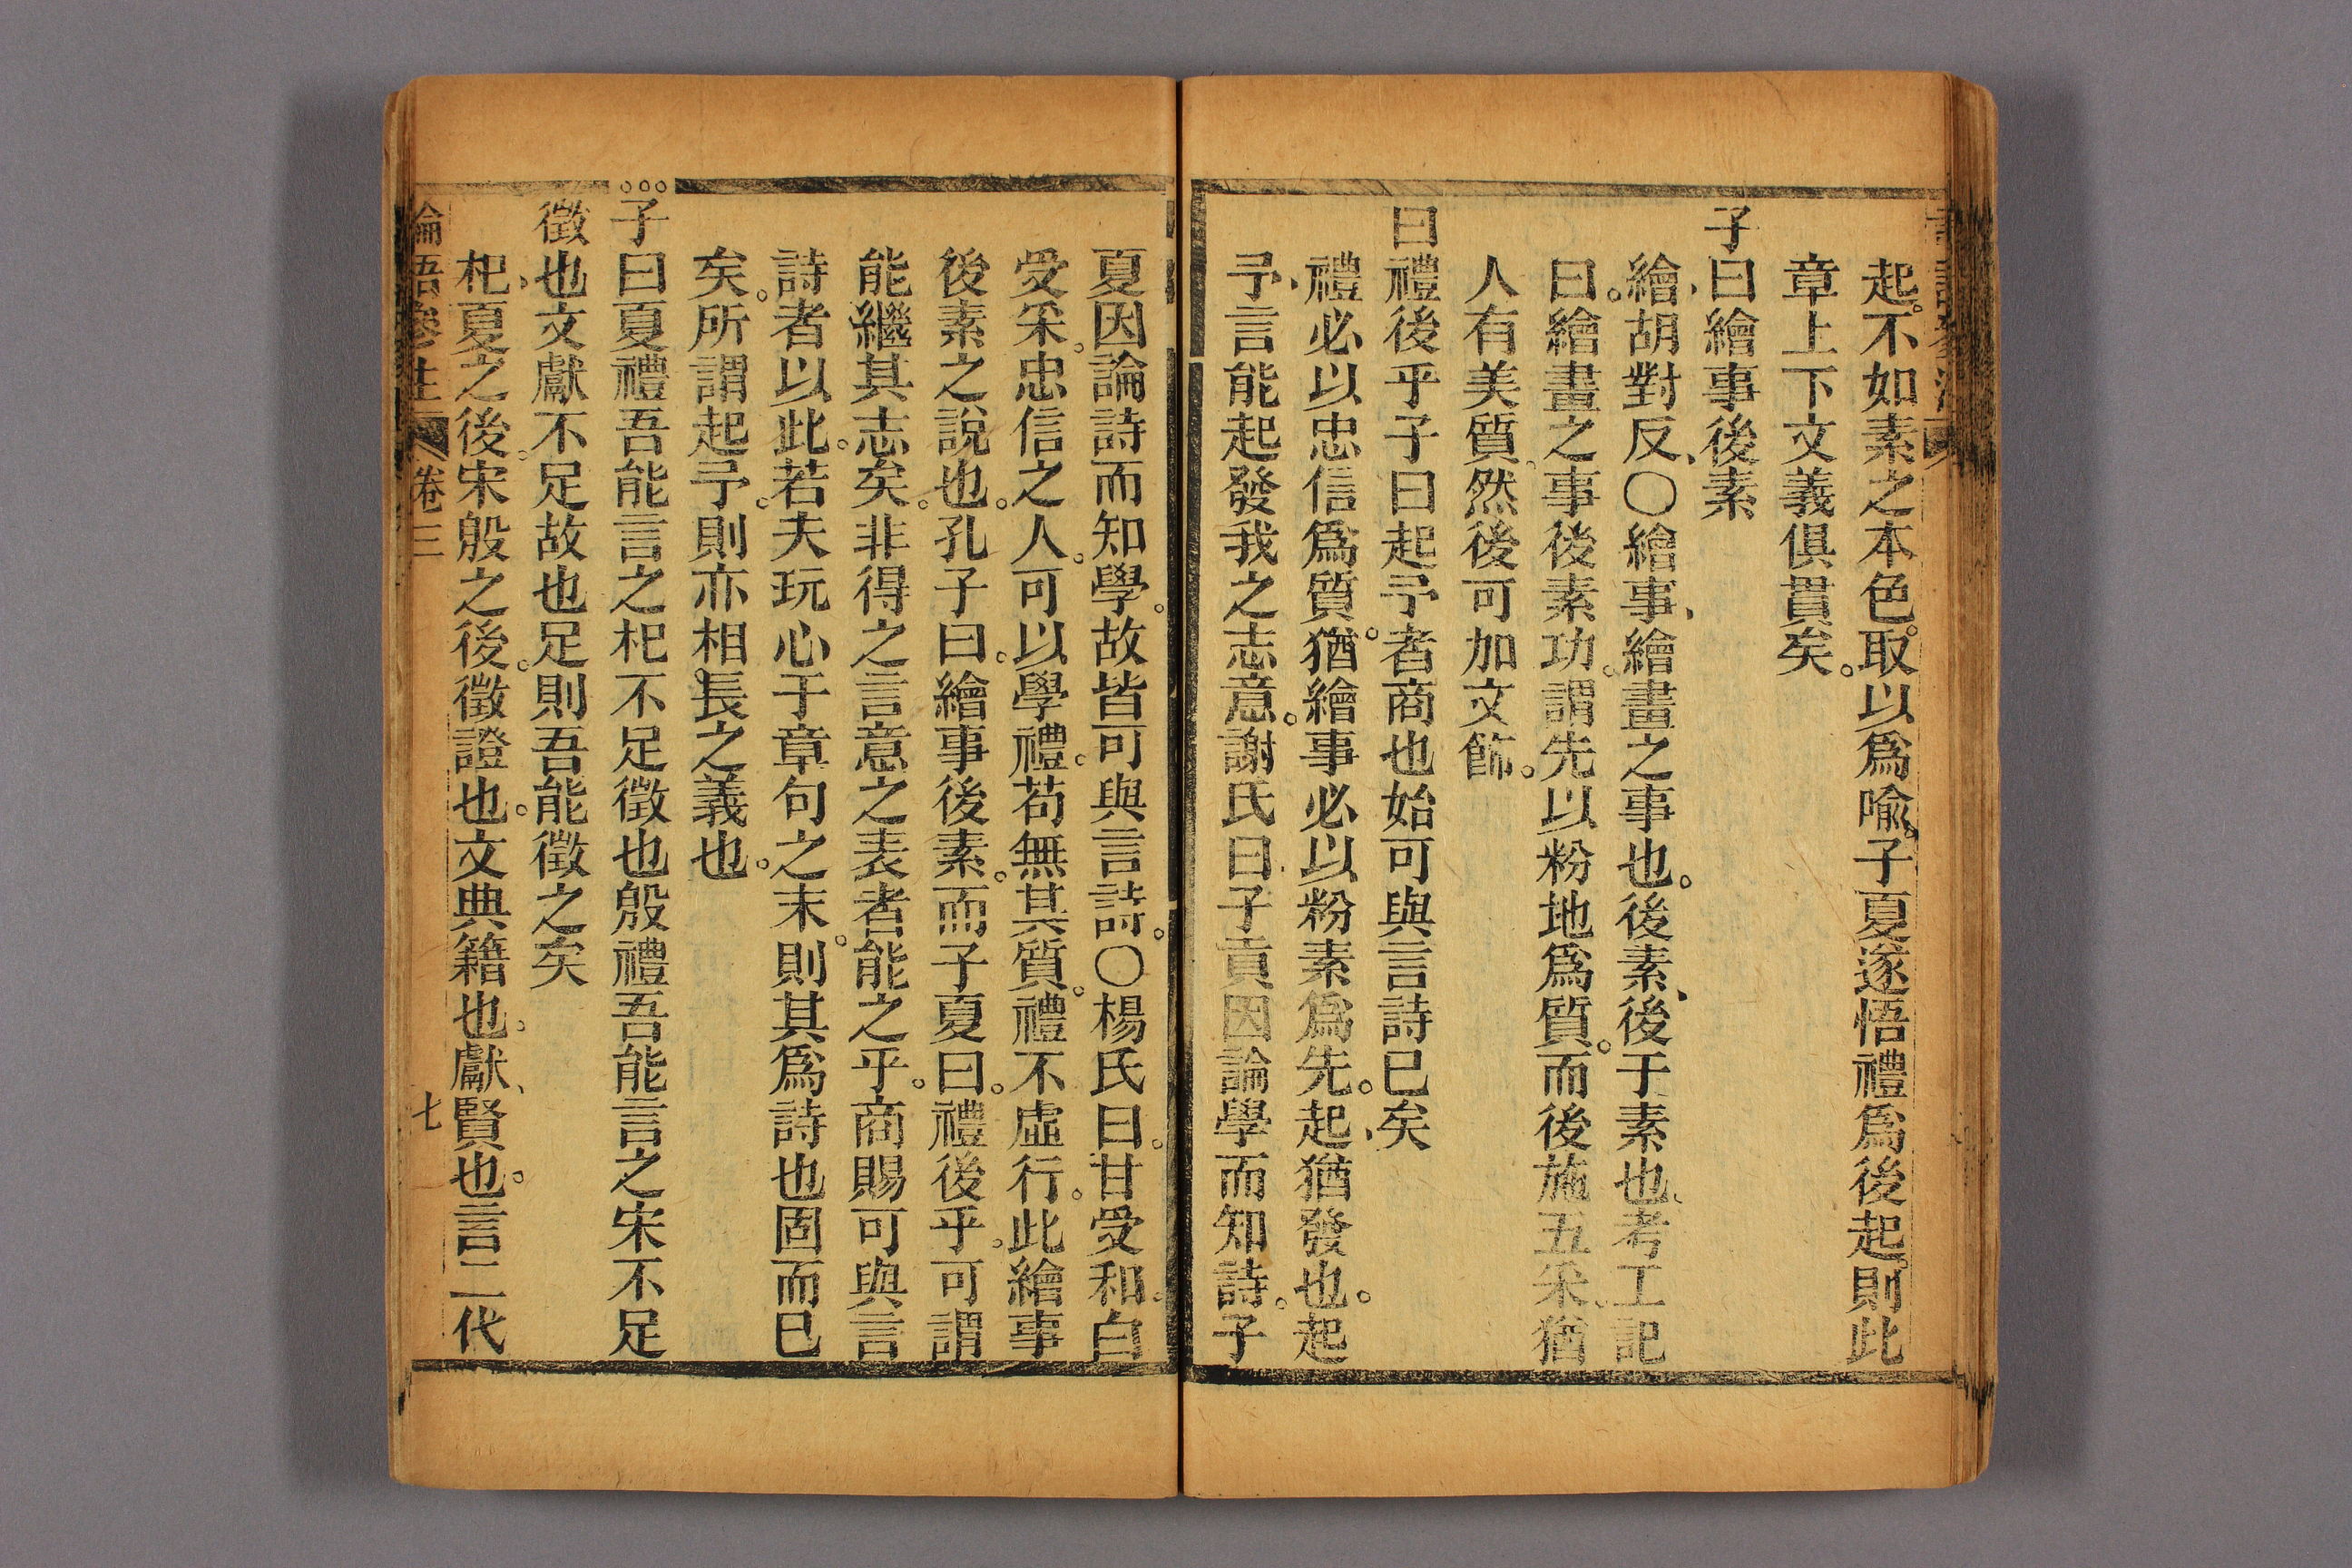 起。不如素之本色。取以爲喩。子夏遂悟禮爲後起。則此
章上下文義俱貫矣。
子曰繪事後素
繪、胡對反、〇繪事、繪畫之事也。後素、後于素也、考工記
曰。繪畫之事後素功。謂先以粉地爲質。而後施五采。猶
人有美質。然後可加文飾。
曰禮後乎子曰起予者商也始可與言詩已矣
禮必以忠信爲質。猶繪事必以粉素爲先。起、猶發也。起
予、言能起發我之志意。謝氏曰子貢因論學而知詩。子
夏因論詩而知學。故皆可與言詩。〇楊氏曰。甘受和。白
受采。忠信之人。可以學禮。苟無其質。禮不虛行。此繪事
後素之說也。孔子曰。繪事後素。而子夏曰。禮後乎。可謂
能繼其志矣。非得之言意之表者能之乎。商賜可與言
詩者以此。若夫玩心于章句之末。則其爲詩也固而已
矣。所謂起予。則亦相長之義也。
子曰夏禮吾能言之杞不足徵也殷禮吾能言之宋不足
徵也文獻不足故也足則吾能徵之矣
杞、夏之後。宋殷之後。徵證也。文典籍也。獻、賢也。言二代
論語參注 卷三 七